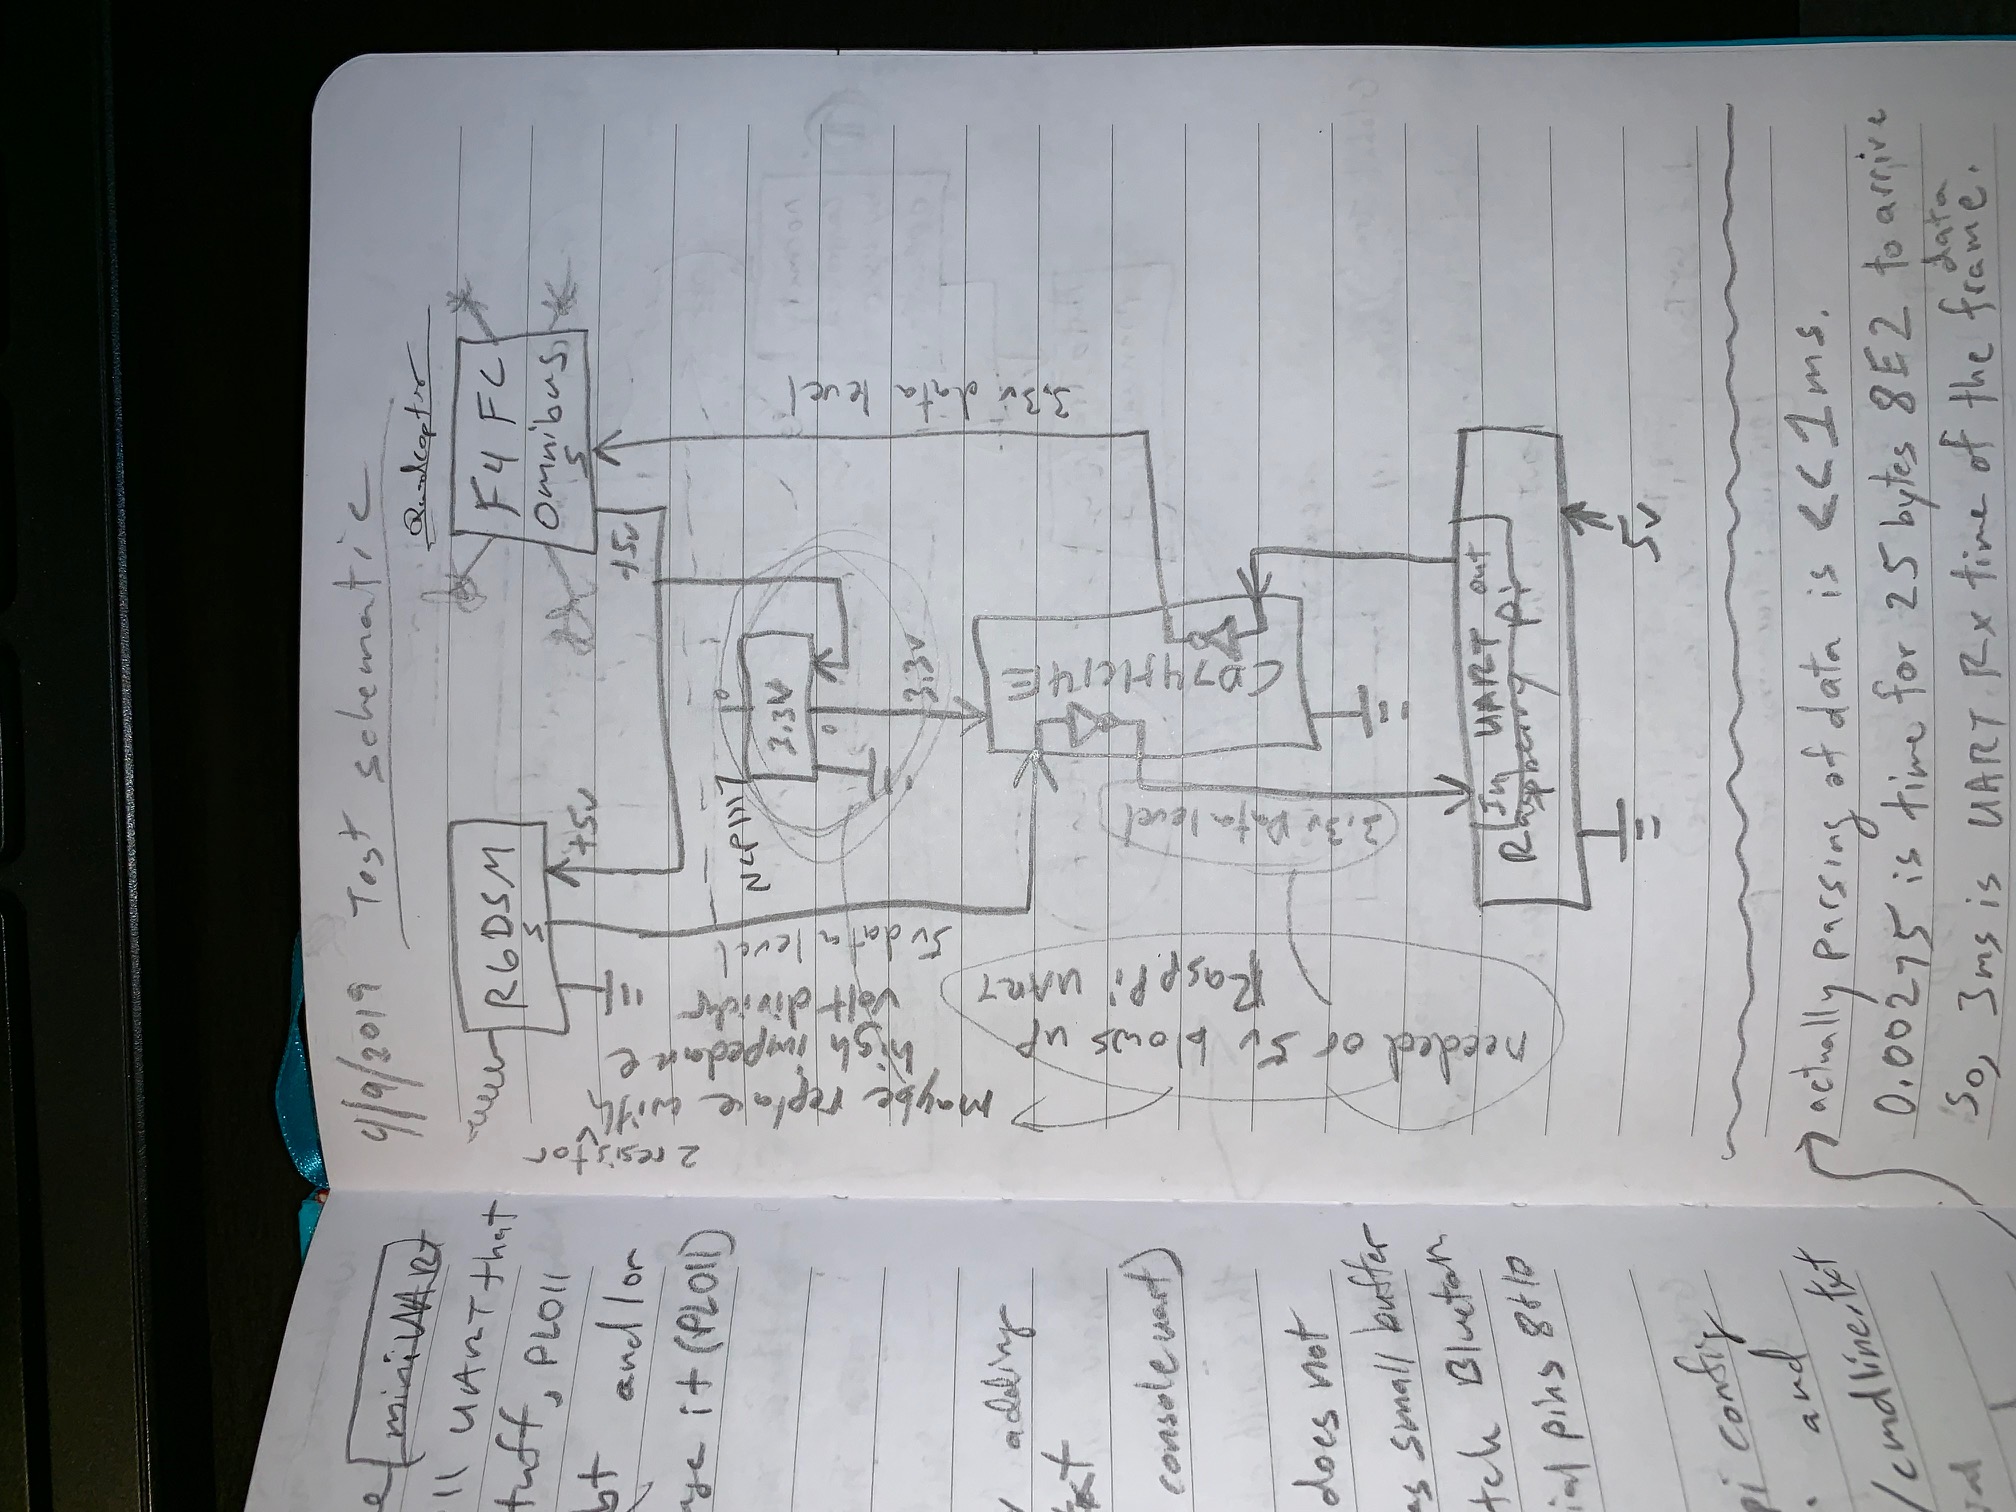 miniUART
11 UART that
PL011
and/or
it (PL011)
adding
console uart)
does not
small buffer
Bluetooth
pins 8+10
pi config
and
/cmdline.txt
4/9/2019 Test schematic
Quadcopter
R6DSM
S
F4 FC
Omnibus
S
+5v
+5v
2 resistor
maybe replace with
high impedance
volt divider
5v data level
NCP1117
3.3V
3.3v
3.3v data level
CD74HC14E
needed or 5v blows up
RaspPi UART
3.3v Data level
In UART out
Raspberry Pi
5v
actually parsing of data is <<1ms.
0.00275 is time for 25 bytes 8E2 to arrive
so, 3ms is UART Rx time of the data frame.